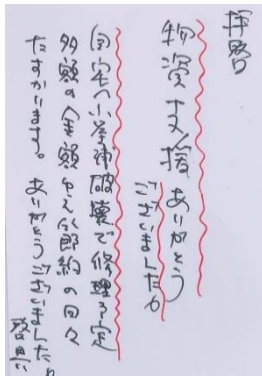 拝啓
物資支援ありがとう
ございました。
自宅へ小学補破壊で修理予定
多額の金額ゆえ節約の日々
たすかります。ありがとうございました。
啓具